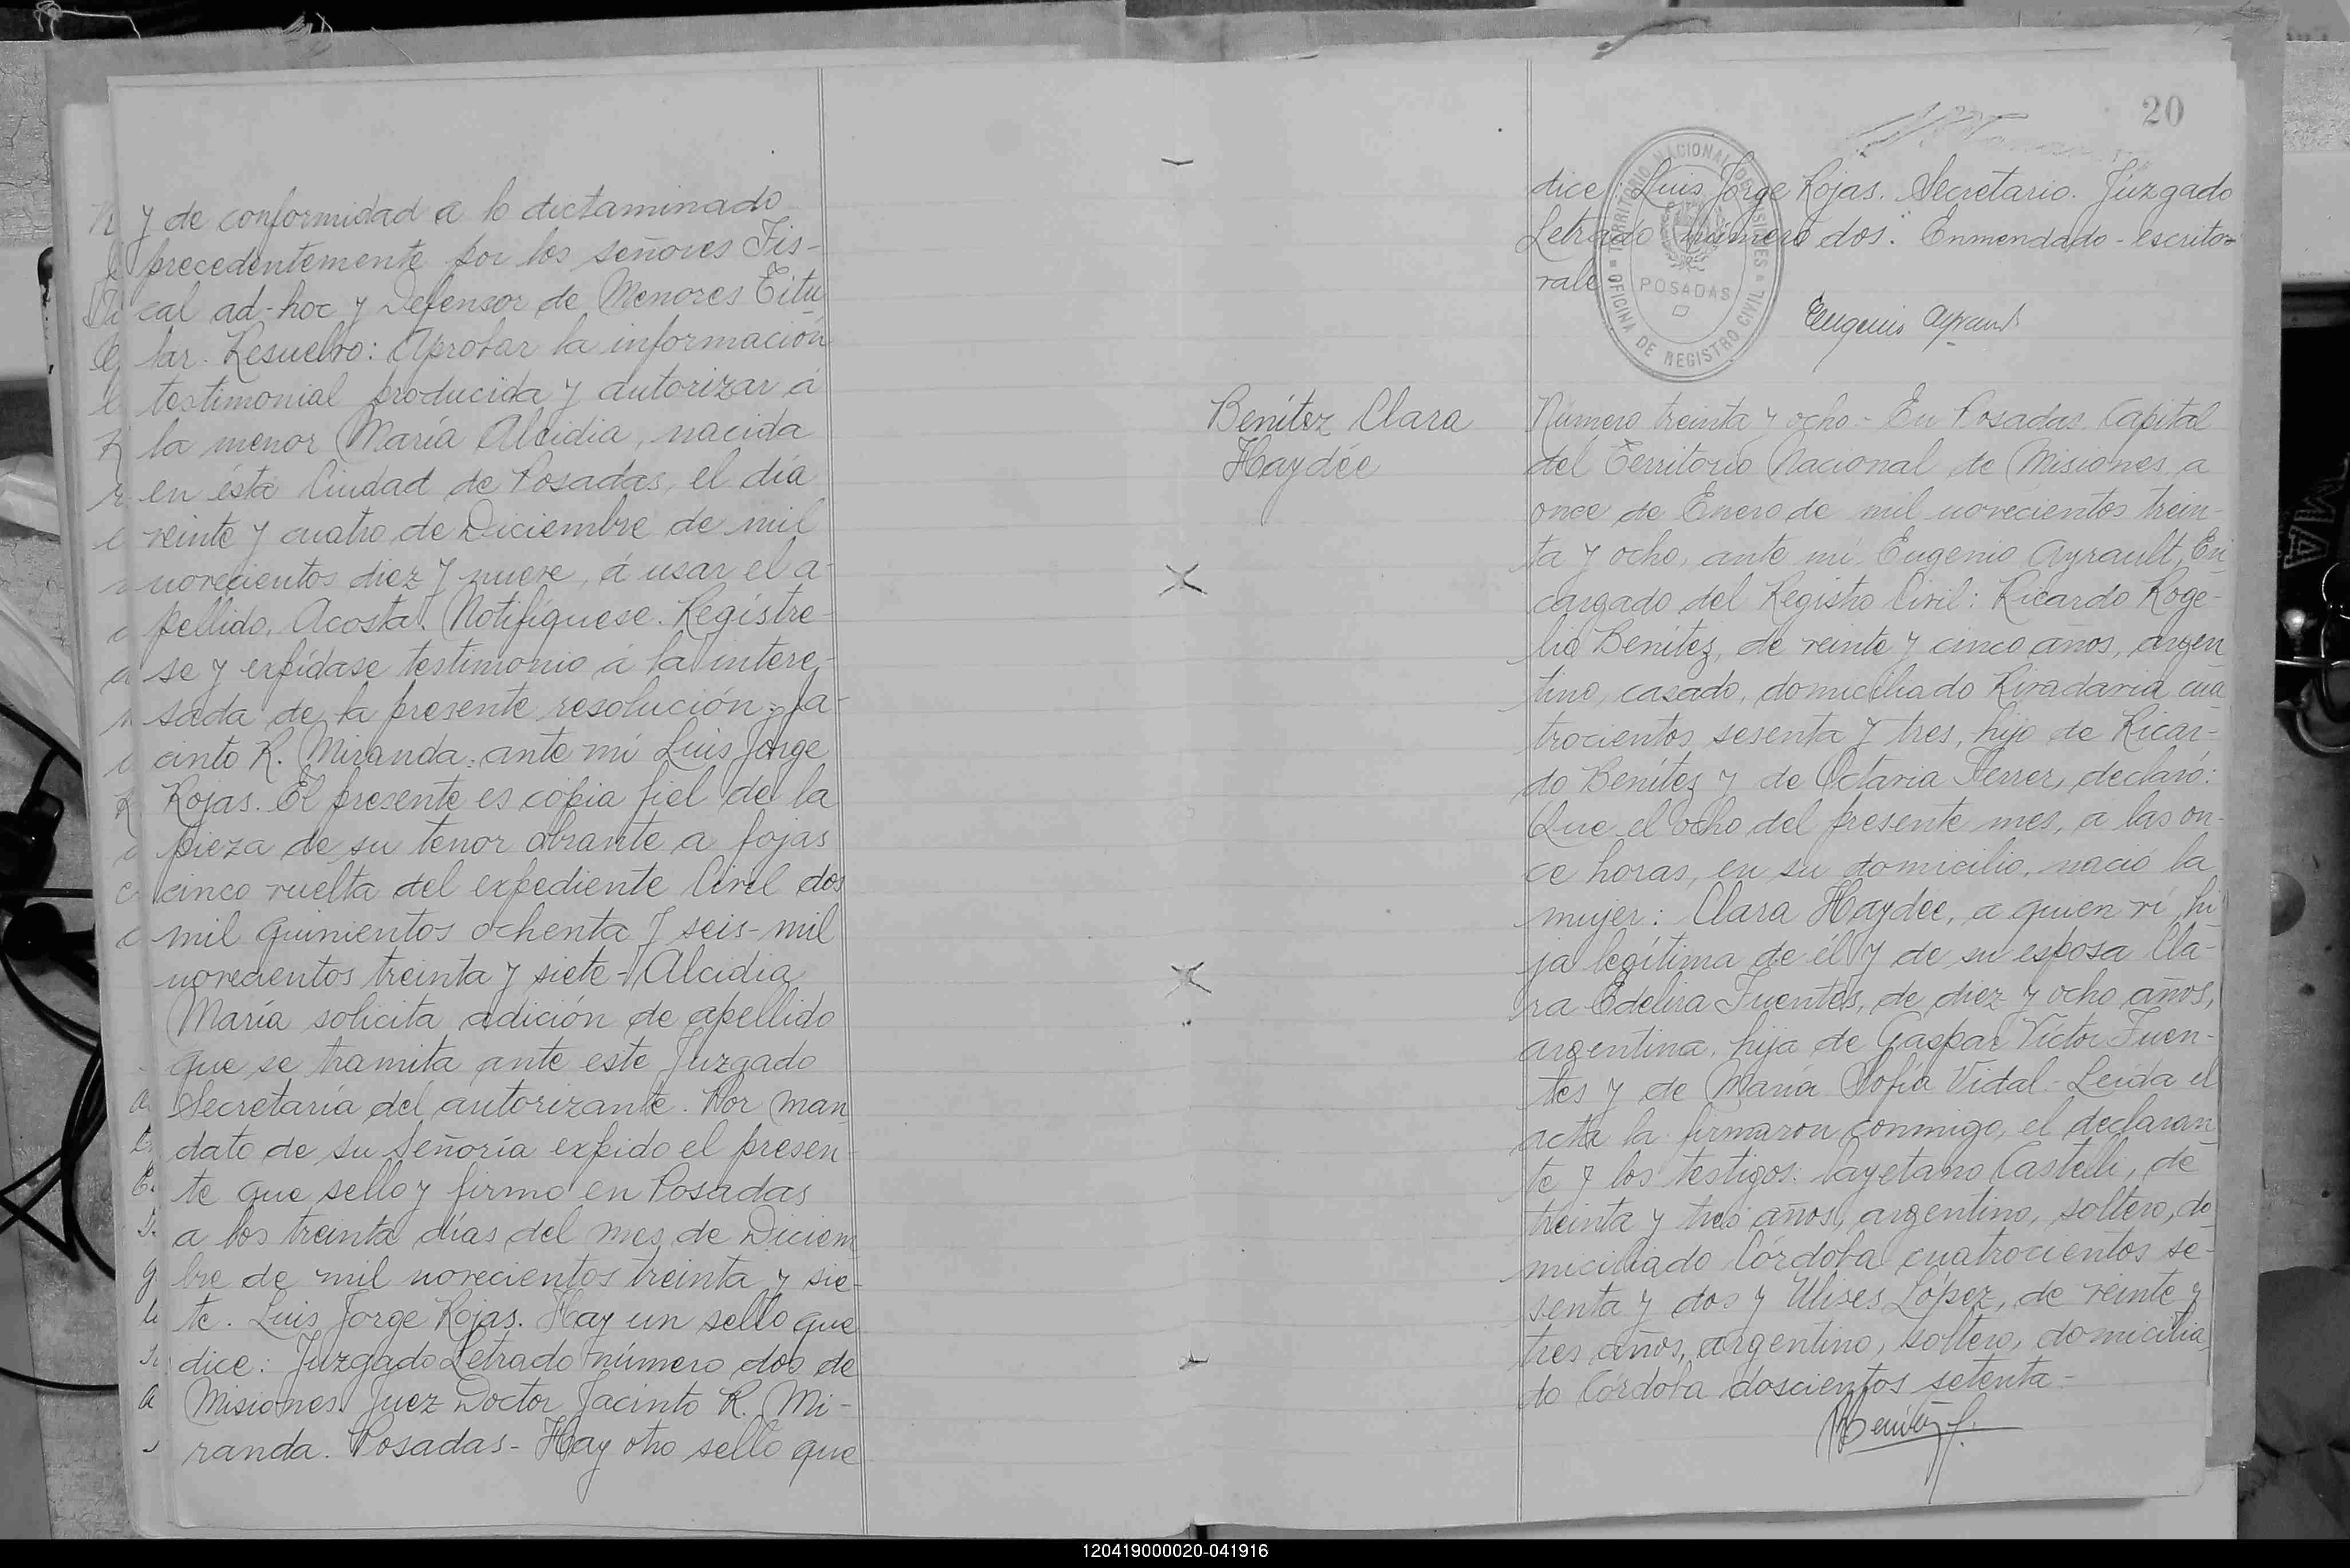 y de conformidad a lo dictaminado
precedentemente por los señores Fis-
cal ad-hoc y Defensor de Menores Titu
lar. Resuelvo: Aprobar la información
testimonial producida y autorizar á
la menor María Alcidia, nacida
en ésta Ciudad de Posadas, el día
veinte y cuatro de Diciembre de mil
novecientos diez y nueve, á usar el a-
pellido, Acosta. Notifíquese. Regístre-
se y expídase testimonio á la intere-
sada de la presente resolución. Ja-
cinto R. Miranda. ante mí Luis Jorge
Rojas. El presente es copia fiel de la
pieza de su tenor obrante a fojas
cinco vuelta del expediente Civil dos
mil quinientos ochenta y seis-mil
novecientos treinta y siete - Alcidia
María solicita adición de apellido
que se tramita ante este Juzgado
Secretaría del autorizante. Por man
dato de su Señoría expido el presen-
te que sello y firmo en Posadas
a los treinta días del mes de Diciem
bre de mil novecientos treinta y sie-
te. Luis Jorge Rojas. Hay un sello que
dice: Juzgado Letrado número dos de
Misiones. Juez Doctor Jacinto R. Mi-
randa. Posadas- Hay otro sello que
20
dice: Luis Jorge Rojas. Secretario. Juzgado
Letrado número dos. Enmendado - escrito-
vale
TERRITORIO NACIONAL DE MISIONES
POSADAS
OFICINA DE REGISTRO CIVIL
Eugenio Ayrault
Benítez Clara
Haydée
Número treinta y ocho - En Posadas, Capital
del Territorio Nacional de Misiones, a
once de Enero de mil novecientos trein-
ta y ocho, ante mí, Eugenio Ayrault, En
cargado del Registro Civil: Ricardo Roge-
lio Benítez, de veinte y cinco años, argen
tino, casado, domiciliado Rivadavia cua
trocientos sesenta y tres, hijo de Ricar-
do Benítez y de Octavia Ferrer, declaró:
Que el ocho del presente mes, a las on-
ce horas, en su domicilio, nació la
mujer: Clara Haydée, a quien ví, hi
ja legítima de él y de su esposa Cla-
ra Edelira Fuentes, de diez y ocho años,
argentina, hija de Gaspar Víctor Fuen-
tes y de María Sofía Vidal - Leída el
acta la firmaron conmigo, el declaran
te y los testigos: Cayetano Castelli, de
treinta y tres años, argentino, soltero, do
miciliado Córdoba cuatrocientos se-
senta y dos y Ulises López, de veinte y
tres años, argentino, soltero, domicilia
do Córdoba doscientos setenta -
RBenítez f.
120419000020-041916